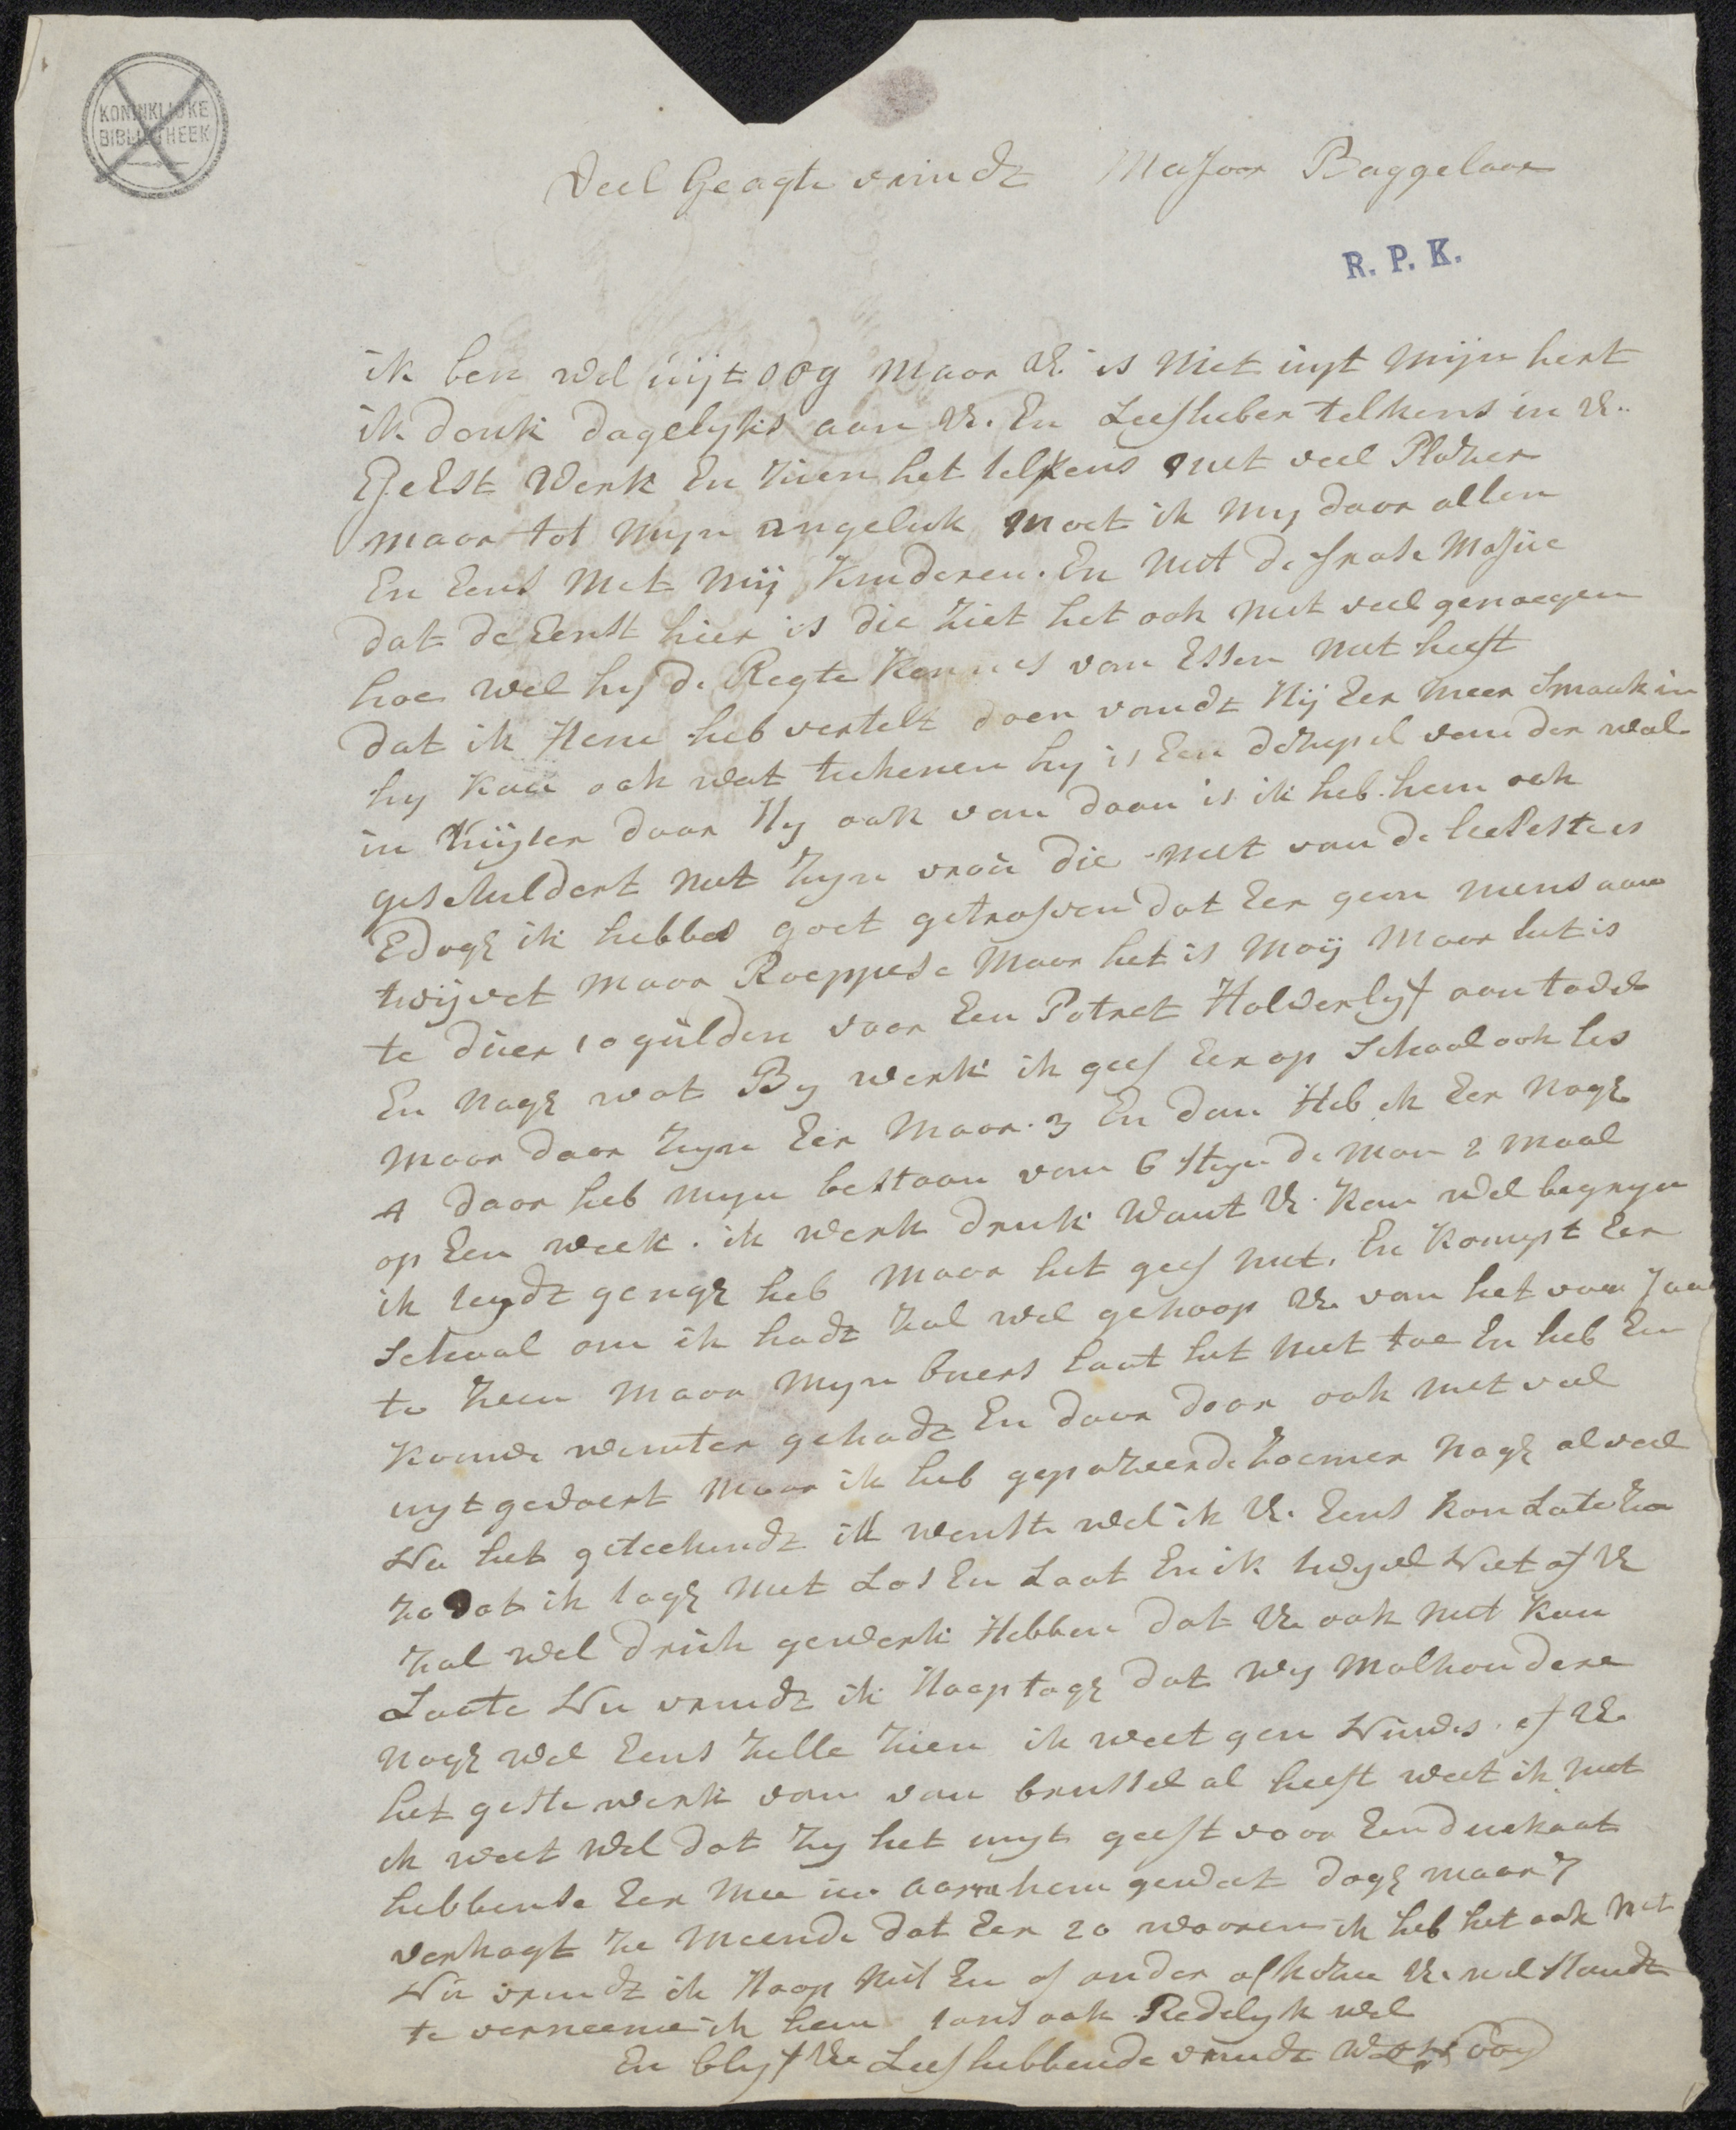 KONINKLIJKE
BIBLIOTHEEK
Veel Geagte vrindt Majoor Baggelaar
R. P. K.
ik ben wel uijt oog maar UE. is niet uyt mijn hert
ik denk dagelyks aan UE. En Liefheber telkens in UE.
Geest Werk En zien het telkens met veel Plezier
maar tot myn ongeluk moet ik my daar allen
En Eens met mij kinderen. En met de
dat de Eenst hier is die ziet het ook met veel genoegen
hoe wel hy de Regte Kennes van Essen niet heeft
dat ik Hem heb vertelt doen vandt Hij Eer meer Smaak in
hy kan ook wat tiekenen hy is Een van der wal
in daar Hy ook van daan is ik heb hem ook
geschildert met zyn vrou die niet van de is
Edogh ik hebbed goet getrofven dat Eer geen mens aan
twijvelt maar Roeppese maar het is Moij maar het is
te duer 10 gulden voor Een Potret Halverlyf
En nogh wat By werk ik geef Eer op School ook les
maar daar zyn Eer maar 3 En dan Heb ik Eer nogh
4 daar heb myn bestaan van 6 de man 2 maal
op Een week. ik werk druk want UE. kan wel begrypen
ik tydt genogh heb maar het geef niet. En kompt Eer
Schaal om ik hadt zal wel gehoop UE. van het voor Jaar
te zien maar myn buers laat het niet toe En heb Een
koude wenter gehadt En daar door ook niet veel
uyt gevoert maar ik heb zoemer nogh al veel
Na het geteekendt ik wenste wel ik UE. Eens kon Late zien
zo dat ik niet Los En Laat En ik niet of UE
zal wel druk gewerk Hebben dat UE ook niet kan
Laate Nu vrindt ik Hoop togh dat wy Malkandere
nogh wel Eens zelle zien ik weet gen Niuws. of UE.
het geste werk van van brussel al heeft weet ik niet
ik weet wel dat zy het uyt geeft voor Een duekaat
hebbense Eer mee in aarnhem gewest dogh maar 7
verkogt ze meende dat Eer 20 waaren ik heb het ook niet
Nu vrindt ik Hoop UE. wel standt
te verneeme ik ben tans ook Redelyk wel
En blyf UE Liefhebbende vrindt